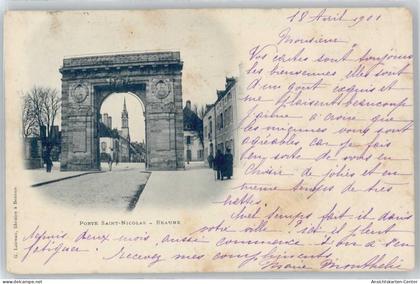 18 Avril 1901
Monsieur,
Vos cartes sont toujours
les bienvenues, elles sont
d'un goût exquis et
me plaisent beaucoup
J'aime à croire que
les miennes vous sont
agréables car je fais
en sorte de vous en
choisir de jolies et en
même temps de très
nettes.
Quel temps fait il dans
votre ville? ici il pleut
depuis deux mois aussi commence t-on à s'en
fatiguer. Recevez mes compliments
Marie
PORTE SAINT-NICOLAS - BEAUNE
G. Éditeur à Beaune.
www.Ansichtskarten-Center.de